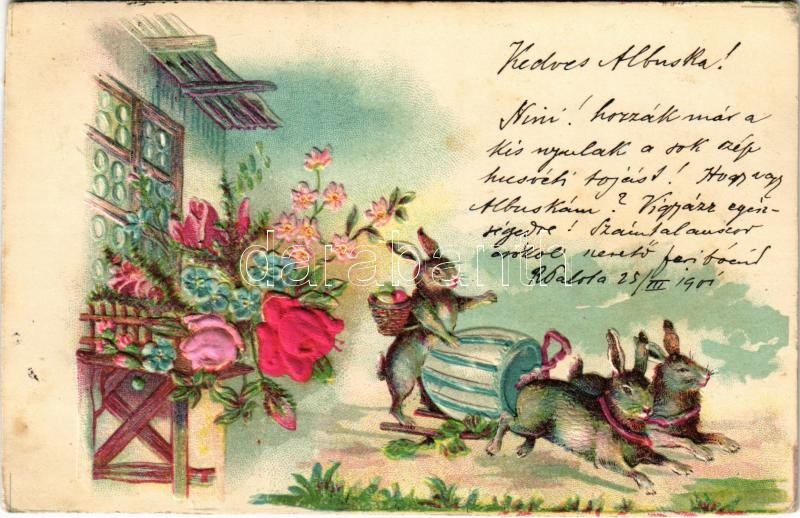 Kedves Albuska!
Nini! hozzák már a
kis nyulak a sok szép
husvéti tojást! Hogy vagy
Albuskám? Vigyázz egész-
ségedre! Számtalanszor
csókol szerető
Palota 25/III 1901
darabanth.com